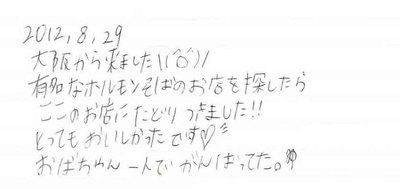 2012, 8, 29
大阪から来ました\(^o^)/
有名なホルモンそばのお店を探したら
ここのお店にたどりつきました!!
とってもおいしかったです♡
おばちゃん一人でがんばってた。